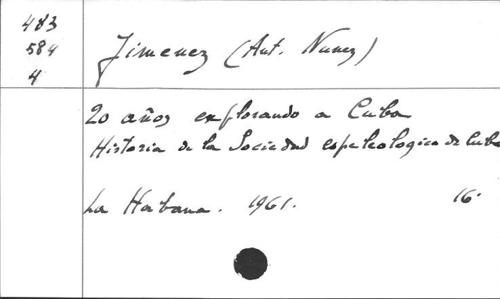 483
584
4
Jimenez (Ant. Nunez)
20 años explorando a Cuba
Historia de la Sociedad espeleologica de Cuba
La Habana. 1961. 16.